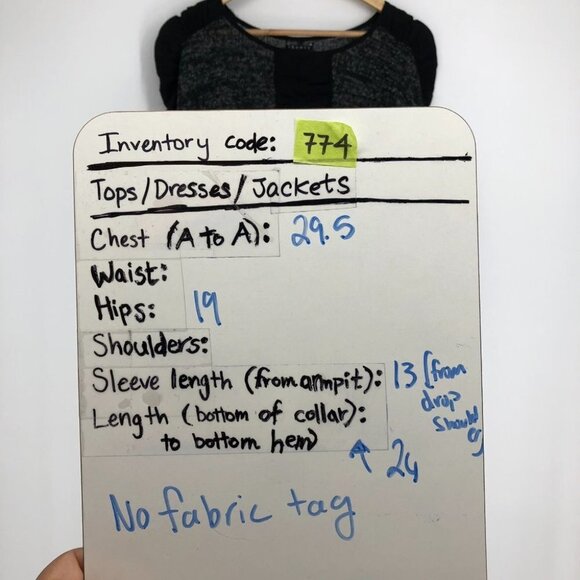 Inventory code: 774
Tops/Dresses/Jackets
Chest (A to A): 29.5
Waist:
Hips: 19
Shoulders:
Sleeve length (from armpit): 13 (from
drop
Should
er)
Length (bottom of collar):
to bottom hem)
↑ 24
No fabric tag